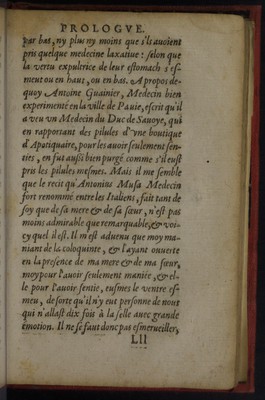 PROLOGVE.
par bas, ny plus ny moins que s'ils auoient
pris quelque medecine laxatiue: selon que
la vertu expultrice de leur estomach s'es-
meut ou en haut, ou en bas. A propos de-
quoy Antoine Guainier, Medecin bien
experimenté en la ville de Pauie, escrit qu'il
a veu vn Medecin du Duc de Sauoye, qui
en rapportant des pilules d'vne boutique
d'Apotiquaire, pour les auoir seulement sen-
ties, en fut aussi bien purgé comme s'il eust
pris les pilules mesmes. Mais il me semble
que le recit qu'Antonius Musa Medecin
fort renommé entre les Italiens, fait tant de
soy que de sa mere & de sa sœur, n'est pas
moins admirable que remarquable, & voi-
cy quel il est. Il m'est aduenu que moy ma-
niant de la coloquinte, & l'ayant ouuerte
en la presence de ma mere & de ma sœur,
moy pour l'auoir seulement maniée, & el-
le pour l'auoir sentie, eusmes le ventre es-
meu, de sorte qu'il n'y eut personne de nous
qui n'allast dix fois à la selle auec grande
émotion. Il ne se faut donc pas esmerueiller,
Lll